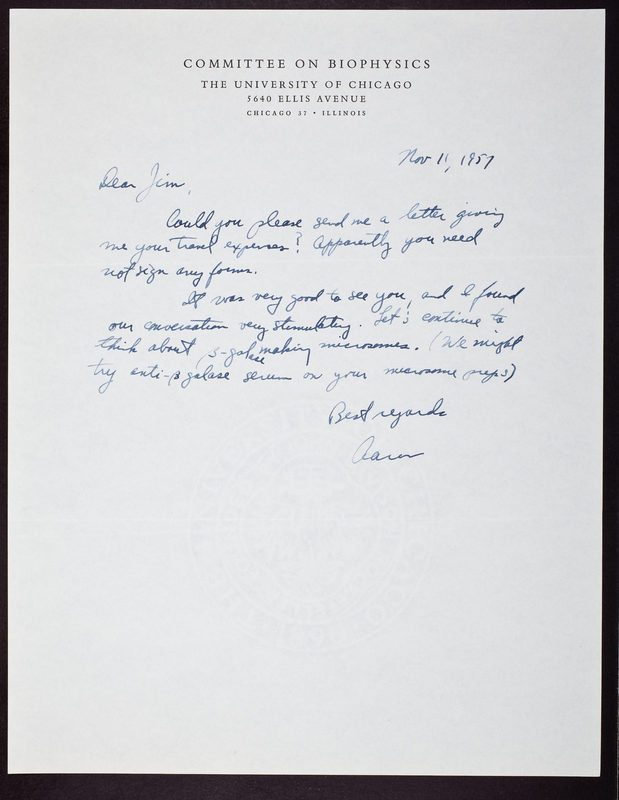 COMMITTEE ON BIOPHYSICS
THE UNIVERSITY OF CHICAGO
5640 ELLIS AVENUE
CHICAGO 37 • ILLINOIS
Nov 11, 1957
Dear Jim,
Could you please send me a letter giving
me your travel expenses? Apparently you need
not sign any forms.
It was very good to see you, and I found
our conversation very stimulating. Let's continue to
think about β-galase making microsomes. (We might
try anti-β galase serum on your microsome preps)
Best regards
Aaron